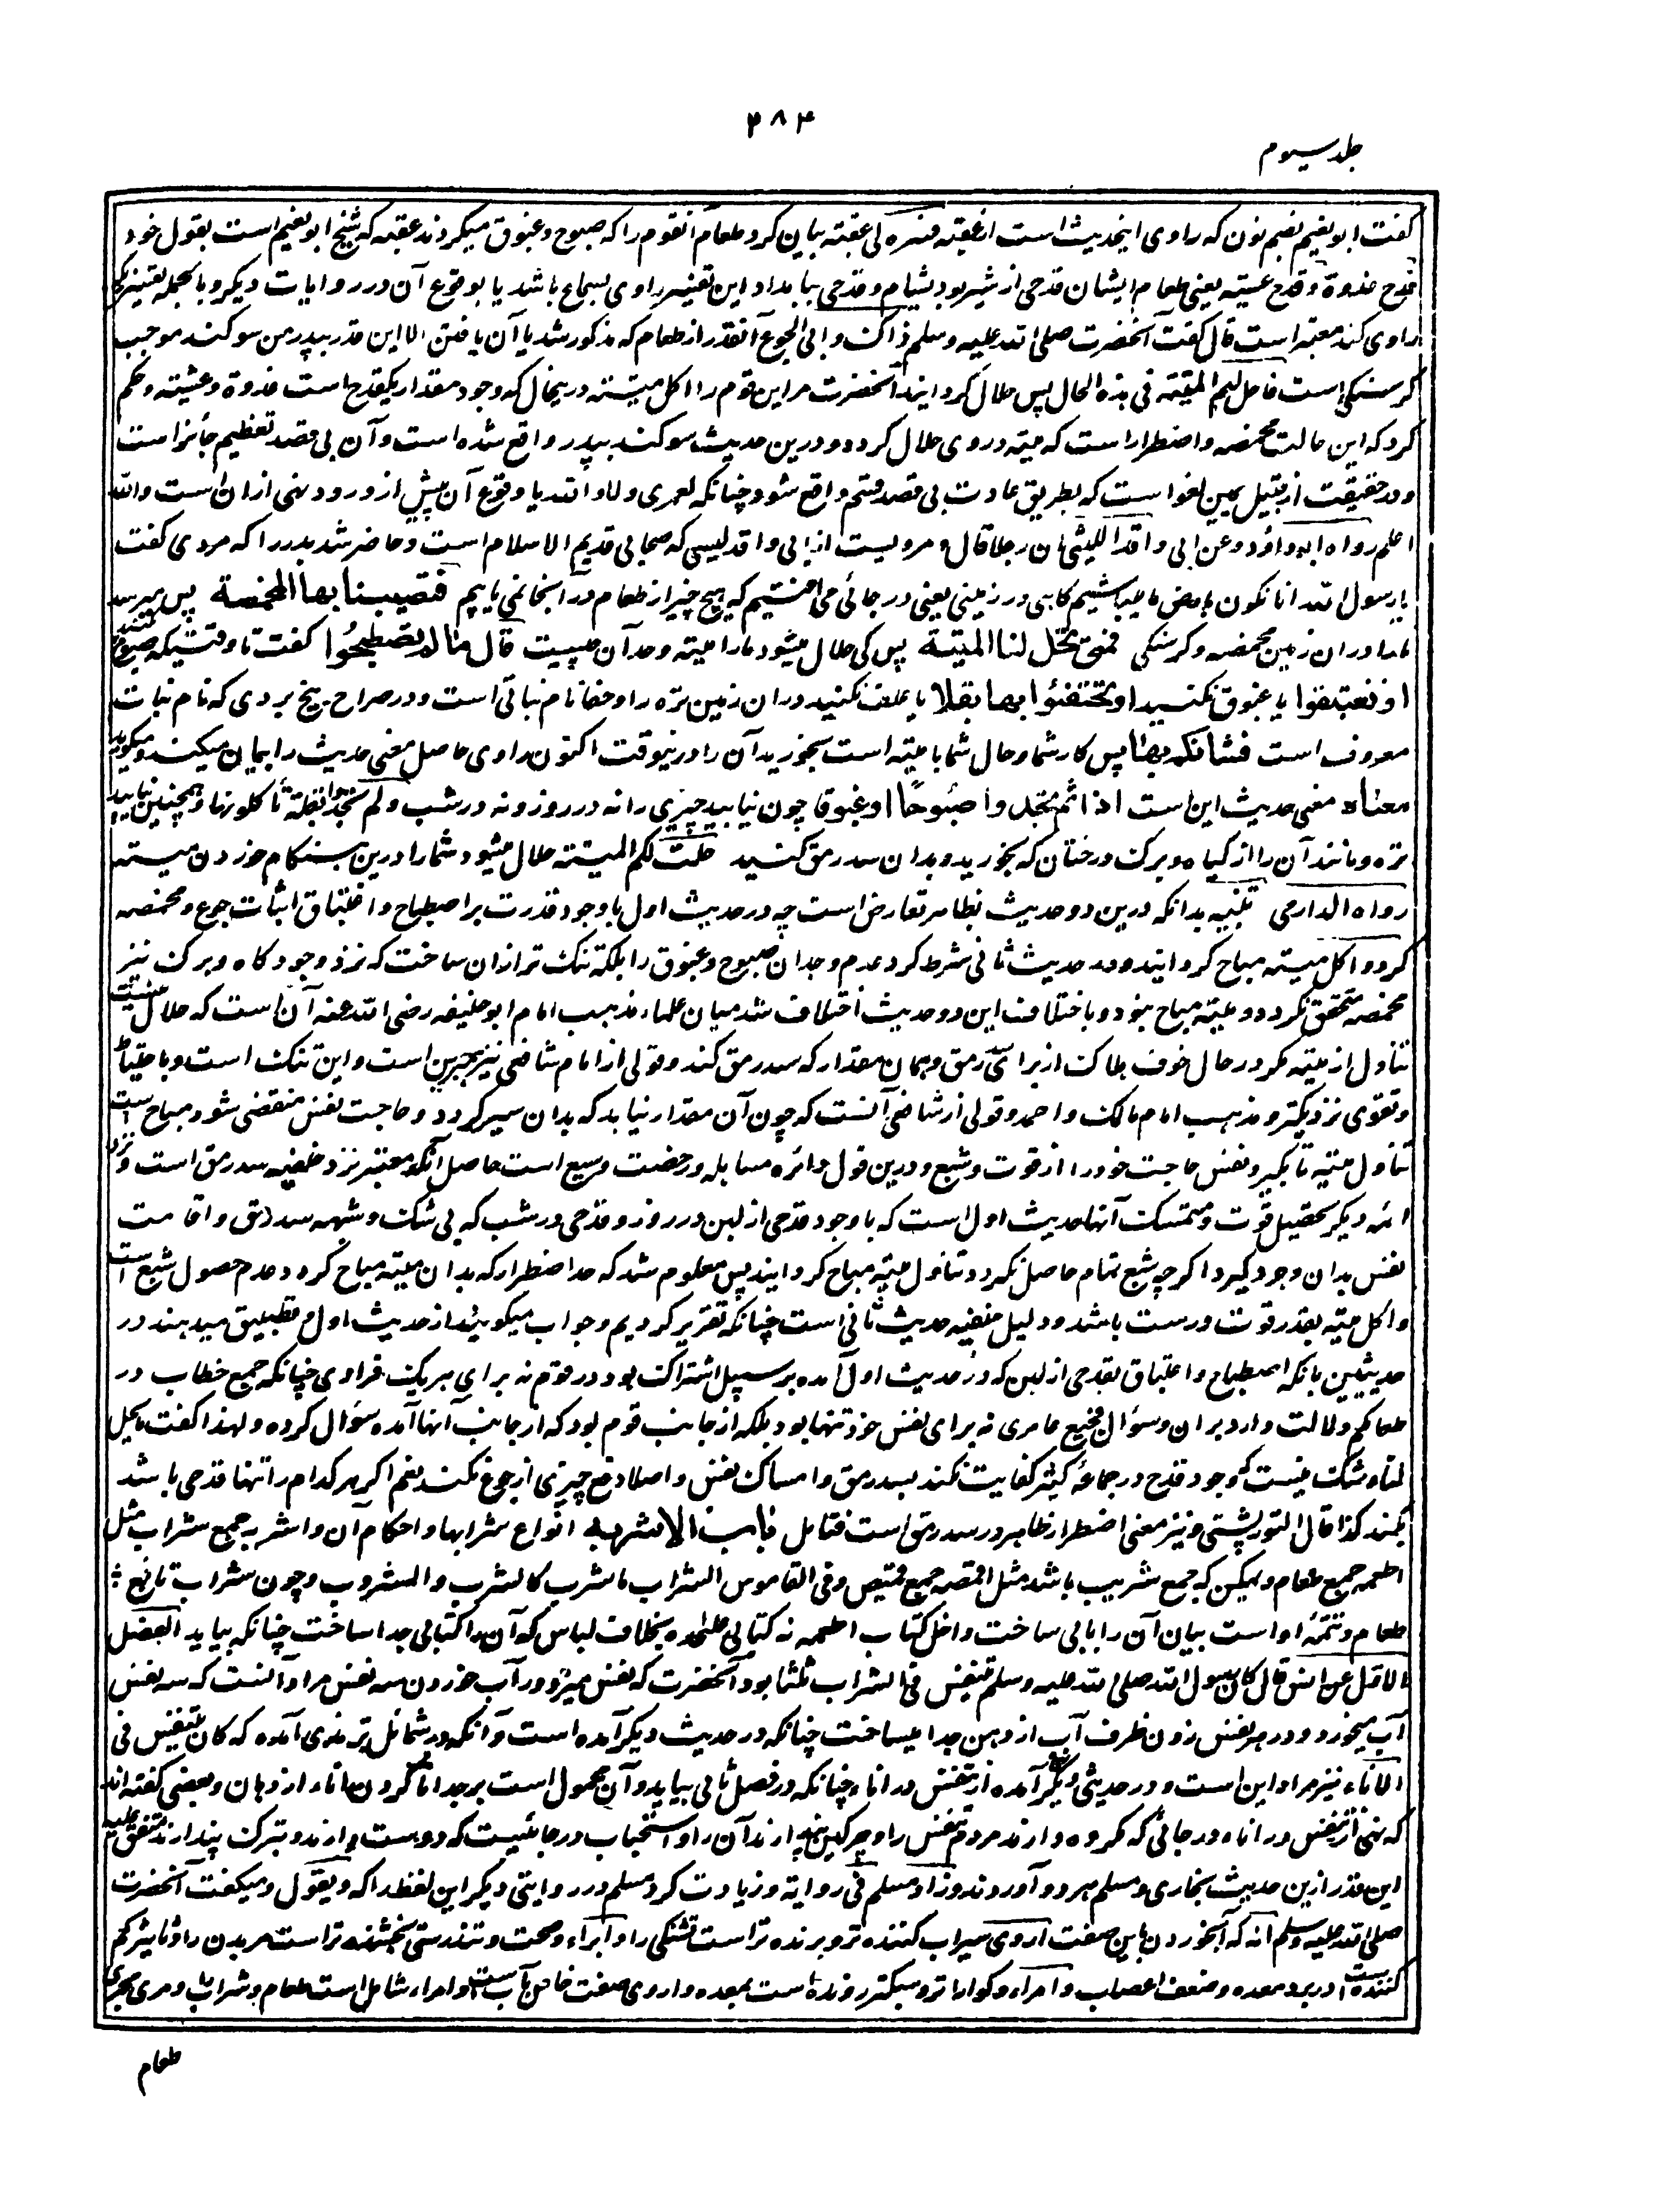 ۳۸۴
جلد سیوم
گفت ابو نعیم بضم نون که راوی اینحدیث است از عقبه فسره لی عقبة بیان کرد طعام آنقوم را که صبوح و غبوق میکردند عقبه که شیخ ابو نعیم است بقول خود
قدح غدوة و قدح عشیة یعنی طعام ایشان قدحی از شیر بود بشام و قدحی ببامداد این تفسیر راوی بسماع باشد یا بوقوع آن در روایات دیگر و بالجمله تفسیریکه
راوی کند معتبر است قال گفت آنحضرت صلی الله علیه وسلم ذاک و ابی الجوع آنقدر از طعام که مذکور شد یا آن یافتن الا این قدر بپدر من سوگند موجب
گرسنگی است فاحل لهم المیتة فی هذه الحال پس حلال گردانید آنحضرت مر این قوم را اکل میته درینحال که وجود مقدار یکقدح است غدوة و عشیة و حکم
کرد که این حالت مخمصه و اضطرار است که میته در وی حلال گردد و درین حدیث سوگند بپدر واقع شده است و آن بی قصد تعظیم جائز است
و در حقیقت از قبیل یمین لغو است که بطریق عادت بی قصد قسم واقع شود چنانکه لعمری و لا والله یا وقوع آن پیش از ورود نهی ازان است والله
اعلم رواه ابو داؤد وعن ابی واقد اللیثی ان رجلا قال و مرویست از ابی واقد لیثی که صحابی قدیم الاسلام است و حاضر شد بدر را که مردی گفت
یا رسول الله انا نکون بارض ما میباشیم گاهی در زمینی یعنی در جائی می افتیم که هیچ چیز از طعام در آنجا نمی یابیم فتصیبنا بها المخمصة پس میرسد
ما را دران زمین مخمصه و گرسنگی فمتی تحل لنا المیتة پس کی حلال میشود مارا میته و حد آن چیست قال ما لم تصطبحوا گفت تا وقتیکه صبوح نکنید
او تغتبقوا یا غبوق نکنید او تختفئوا بها بقلا یا علف نکنید دران زمین تره را و حفا نام نباتی است و در صراح بیخ بردی که نام نبات
معروف است فشانکم بها پس کار شما و حال شما با میته است بخورید آن را درینوقت اکنون راوی حاصل معنی حدیث را بیان میکند و میگوید
معناه معنی حدیث این است اذا لم تجدوا صبوحا او غبوقا چون نیابید چیزی را نه در روز و نه در شب ولم تجدوا بقلة تأکلونها و همچنین نیابید
تره و مانند آن را از گیاه و برگ درختان که بخورید و بدان سد رمق کنید حلت لکم المیتة حلال میشود شما را درین هنگام خوردن میته
رواه الدارمی تنبیه بدانکه درین دو حدیث بظاهر تعارض است چه در حدیث اول با وجود قدرت بر اصطباح و اغتباق اثبات جوع و مخمصه
کرد و اکل میته مباح گردانید و در حدیث ثانی شرط کرد عدم وجدان صبوح و غبوق را بلکه تنگ تر ازان ساخت که نزد وجود گاه و برگ نیز
مخمصه متحقق نگردد و میته مباح نبود و باختلاف این دو حدیث اختلاف شد میان علما مذهب امام ابو حنیفه رضی الله عنه آن است که حلال نیست
تناول از میته مگر در حال خوف هلاک از برای سد رمق و همان مقدار که سد رمق کند و قولی از امام شافعی نیز همین است و این تنگ است و باحتیاط
و تقوی نزدیکتر و مذهب امام مالک و احمد و قولی از شافعی آنست که چون آن مقدار نیابد که بدان سیر گردد و حاجت نفس منقضی شود مباح است
تناول میته تا بگیرد نفس حاجت خود را از قوت و شبع و درین قول دائره مساهله و رخصت وسیع است حاصل آنکه معتبر نزد حنفیه سد رمق است و نزد
ائمه دیگر تحصیل قوت و متمسک آنها حدیث اول است که با وجود قدحی از لبن در روز و قدحی در شب که بی شک و شبهه سد رمق و اقامت
نفس بدان وجود گیرد اگرچه شبع تمام حاصل نگردد تناول میته مباح گردانید پس معلوم شد که حد اضطرار که بدان میته مباح گردد عدم حصول شبع است
و اکل میته بقدر قوت درست باشد و دلیل حنفیه حدیث ثانی است چنانکه تقریر کردیم و جواب میگویند از حدیث اول و تطبیق میدهند در
حدیثین بانکه اصطباح و اغتباق بقدحی از لبن که در حدیث اول آمده بر سبیل اشتراک بود در قوم نه برای هر یک فرادی چنانکه جمع خطاب در
طعامکم دلالت دارد بران و سؤال فجیع عامری نه برای نفس خود تنها بود بلکه از جانب قوم بود که از جانب آنها آمده سؤال کرده و لهذا گفت ما یحل
لنا و شک نیست که وجود قدح در جماعه کثیر کفایت نکند بسد رمق و امساک نفس و اصلا دفع چیزی از جوع نکند نعم اگر هر کدام را تنها قدحی باشد
بکند کذا قال التورپشتی و نیز معنی اضطرار ظاهر در سد رمق است فتامل باب الاشربه انواع شرابها و احکام آن و اشربه جمع شراب مثل
اطعمه جمع طعام و یمکن که جمع شریب باشد مثل اقمصه جمع قمیص و فی القاموس الشراب ما شرب کالشرب و المشروب و چون شراب تابع
طعام و تتمۀ او است بیان آن را بابی ساخت داخل کتاب اطعمه نه کتابی علیحده بخلاف لباس که آن را کتابی جدا ساخت چنانکه بیاید الفصل
الاول عن انس قال کان رسول الله صلی الله علیه وسلم یتنفس فی الشراب ثلثا بود آنحضرت که نفس میزد در آب خوردن سه نفس مراد آنست که سه نفس
آب میخورد و در هر نفس زدن ظرف آب از دهن جدا میساخت چنانکه در حدیث دیگر آمده است و آنکه در شمائل ترمذی آمده که کان یتنفس فی
الاناء نیز مراد این است و در حدیثی دیگر آمده از تنفس در اناء چنانکه در فصل ثانی بیاید و آن محمول است بر جدا ناکردن اناء از دهان و بعضی گفته اند
که نهی از تنفس در اناء در جائی که مکروه دارند مردم تنفس را و چرکین پندارند آن را و استحباب در جائیست که دوست دارند و تبرک پندارند متفق علیه
این قدر ازین حدیث بخاری و مسلم هر دو آوردند و زاد مسلم فی روایة و زیادت کرد مسلم در روایتی دیگر این لفظ را که و یقول و میگفت آنحضرت
صلی الله علیه وسلم انه که آبخوردن باین صفت اروی سیراب کننده تر و برنده تر است تشنگی را و ابراء و صحت و تندرستی بخشنده تر است مر بدن را و تاثیر کم
کننده است در برد معده و ضعف اعصاب و امراء و گوارا تر و سبکتر رونده است بمعده و اروی صفت خاص بآب است و امراء شامل است طعام و شراب و مری مجری
طعام